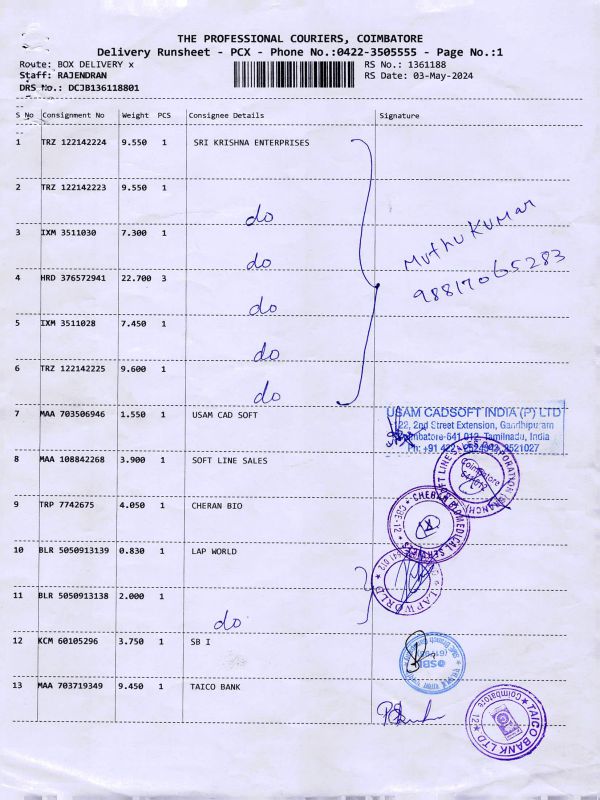 THE PROFESSIONAL COURIERS, COIMBATORE
Delivery Runsheet - PCX - Phone No.:0422-3505555 - Page No.:1
Route: BOX DELIVERY x RS No.: 1361188
Staff: RAJENDRAN RS Date: 03-May-2024
DRS No.: DCJB136118801
S No Consignment No Weight PCS Consignee Details Signature
1 TRZ 122142224 9.550 1 SRI KRISHNA ENTERPRISES
2 TRZ 122142223 9.550 1
do
3 IXM 3511030 7.300 1
do
Muthu Kumar
4 HRD 376572941 22.700 3
do
98817065283
5 IXM 3511028 7.450 1
do
6 TRZ 122142225 9.600 1
do
7 MAA 703506946 1.550 1 USAM CAD SOFT
USAM CADSOFT INDIA (P) LTD
122, 2nd Street Extension, Gandhipuram
Coimbatore-641 012, Tamilnadu, India
8 MAA 108842268 3.900 1 SOFT LINE SALES
SOFT LINE SALES CORPORATION (BRANCH)
Coimbatore
9 TRP 7742675 4.050 1 CHERAN BIO
CHERAN BIOMEDICAL SERVICES
CBE-12
10 BLR 5050913139 0.830 1 LAP WORLD
LAPWORLD
11 BLR 5050913138 2.000 1
do
12 KCM 60105296 3.750 1 SB I
SBI
13 MAA 703719349 9.450 1 TAICO BANK
TAICO BANK LTD
Coimbatore - 12